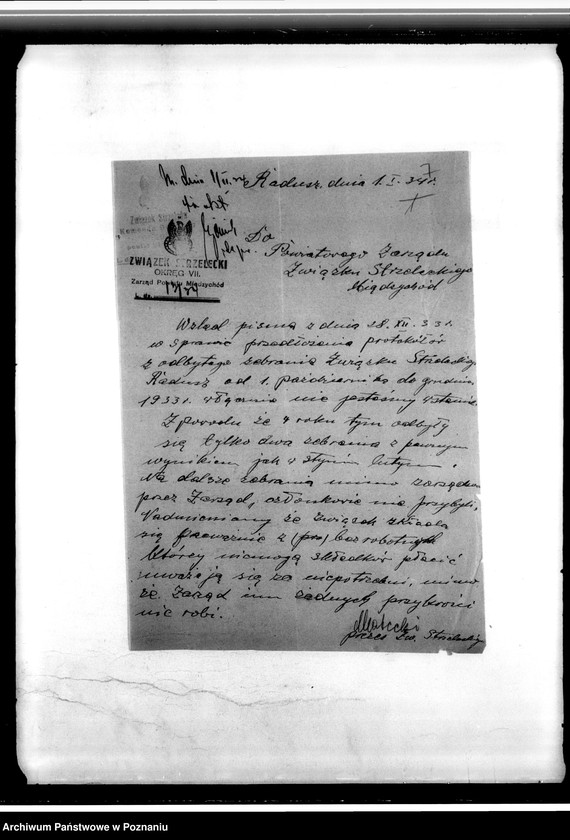 Radusz. dnia 1. I. 34 r.
Do
Powiatowego Zarządu
Związku Strzeleckiego
Międzychód
ZWIĄZEK STRZELECKI
OKRĘG VII.
Zarząd Powiatu Międzychód
Wzlad pisma z dnia 28. XII. 33 r.
w sprawie przedłożenia protokółów
z odbytego zebrania Związku Strzeleckiego
Radusz od 1. października do grudnia
1933 r. włącznie nie jesteśmy wstanie
Z powodu że w roku tym odbyły
się tylko dwa zebrania z pewnym
wynikiem jak w styczniu lutym.
Na dalsze zebrania mimo
przez Zarząd, członkowie nie przybyli.
Nadmieniamy że Związek składa
się przeważnie z bezrobotnych
Którzy niemogą składków płacić
uważają się za niepotrzebni, mimo
że. Zarząd im żadnych przykrości
nie robi.
Małecki
prezes Zw. Strzelecki
Archiwum Państwowe w Poznaniu